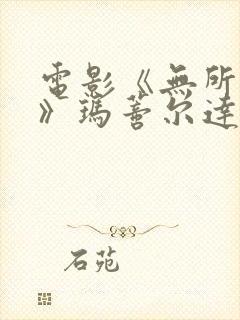 電影《無所
》瑪蓄尔達
石苑